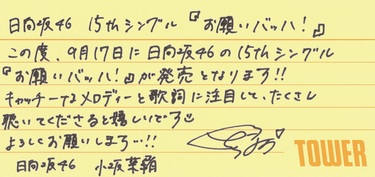 日向坂46 15thシングル『お願いバッハ!』
この度、9月17日に日向坂46の15thシングル
『お願いバッハ!』が発売となります!!
キャッチーなメロディーと歌詞に注目して、たくさん
聴いてくださると嬉しいです
よろしくお願いします…!!
日向坂46 小坂菜緒
TOWER